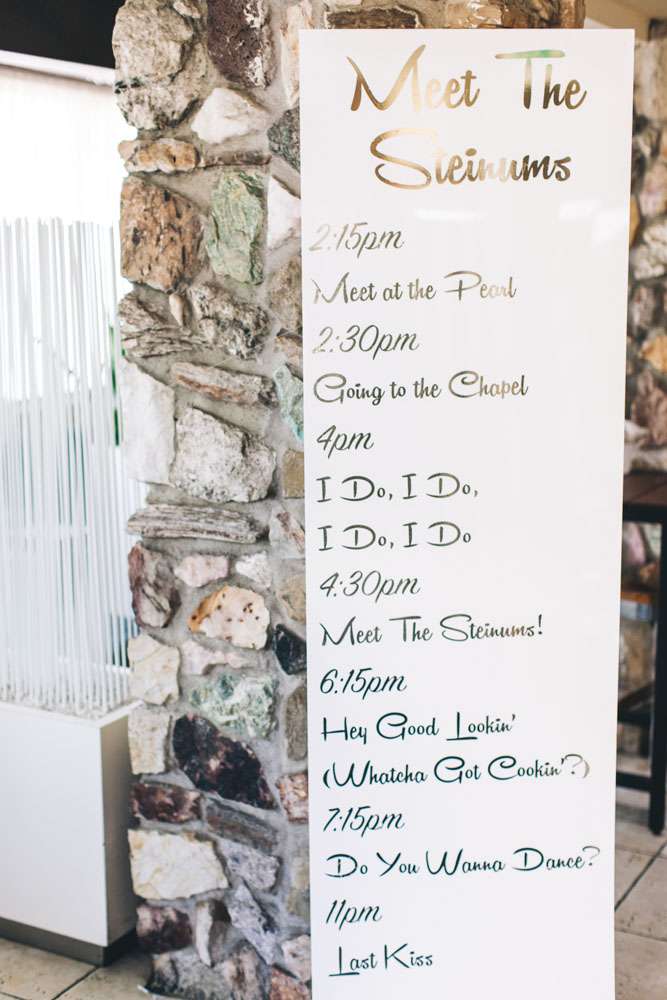 Meet The
Steinums
2:15pm
Meet at the Pearl
2:30pm
Going to the Chapel
4pm
I Do, I Do,
I Do, I Do
4:30pm
Meet The Steinums!
6:15pm
Hey Good Lookin'
(Whatcha Got Cookin'?)
7:15pm
Do You Wanna Dance?
11pm
Last Kiss